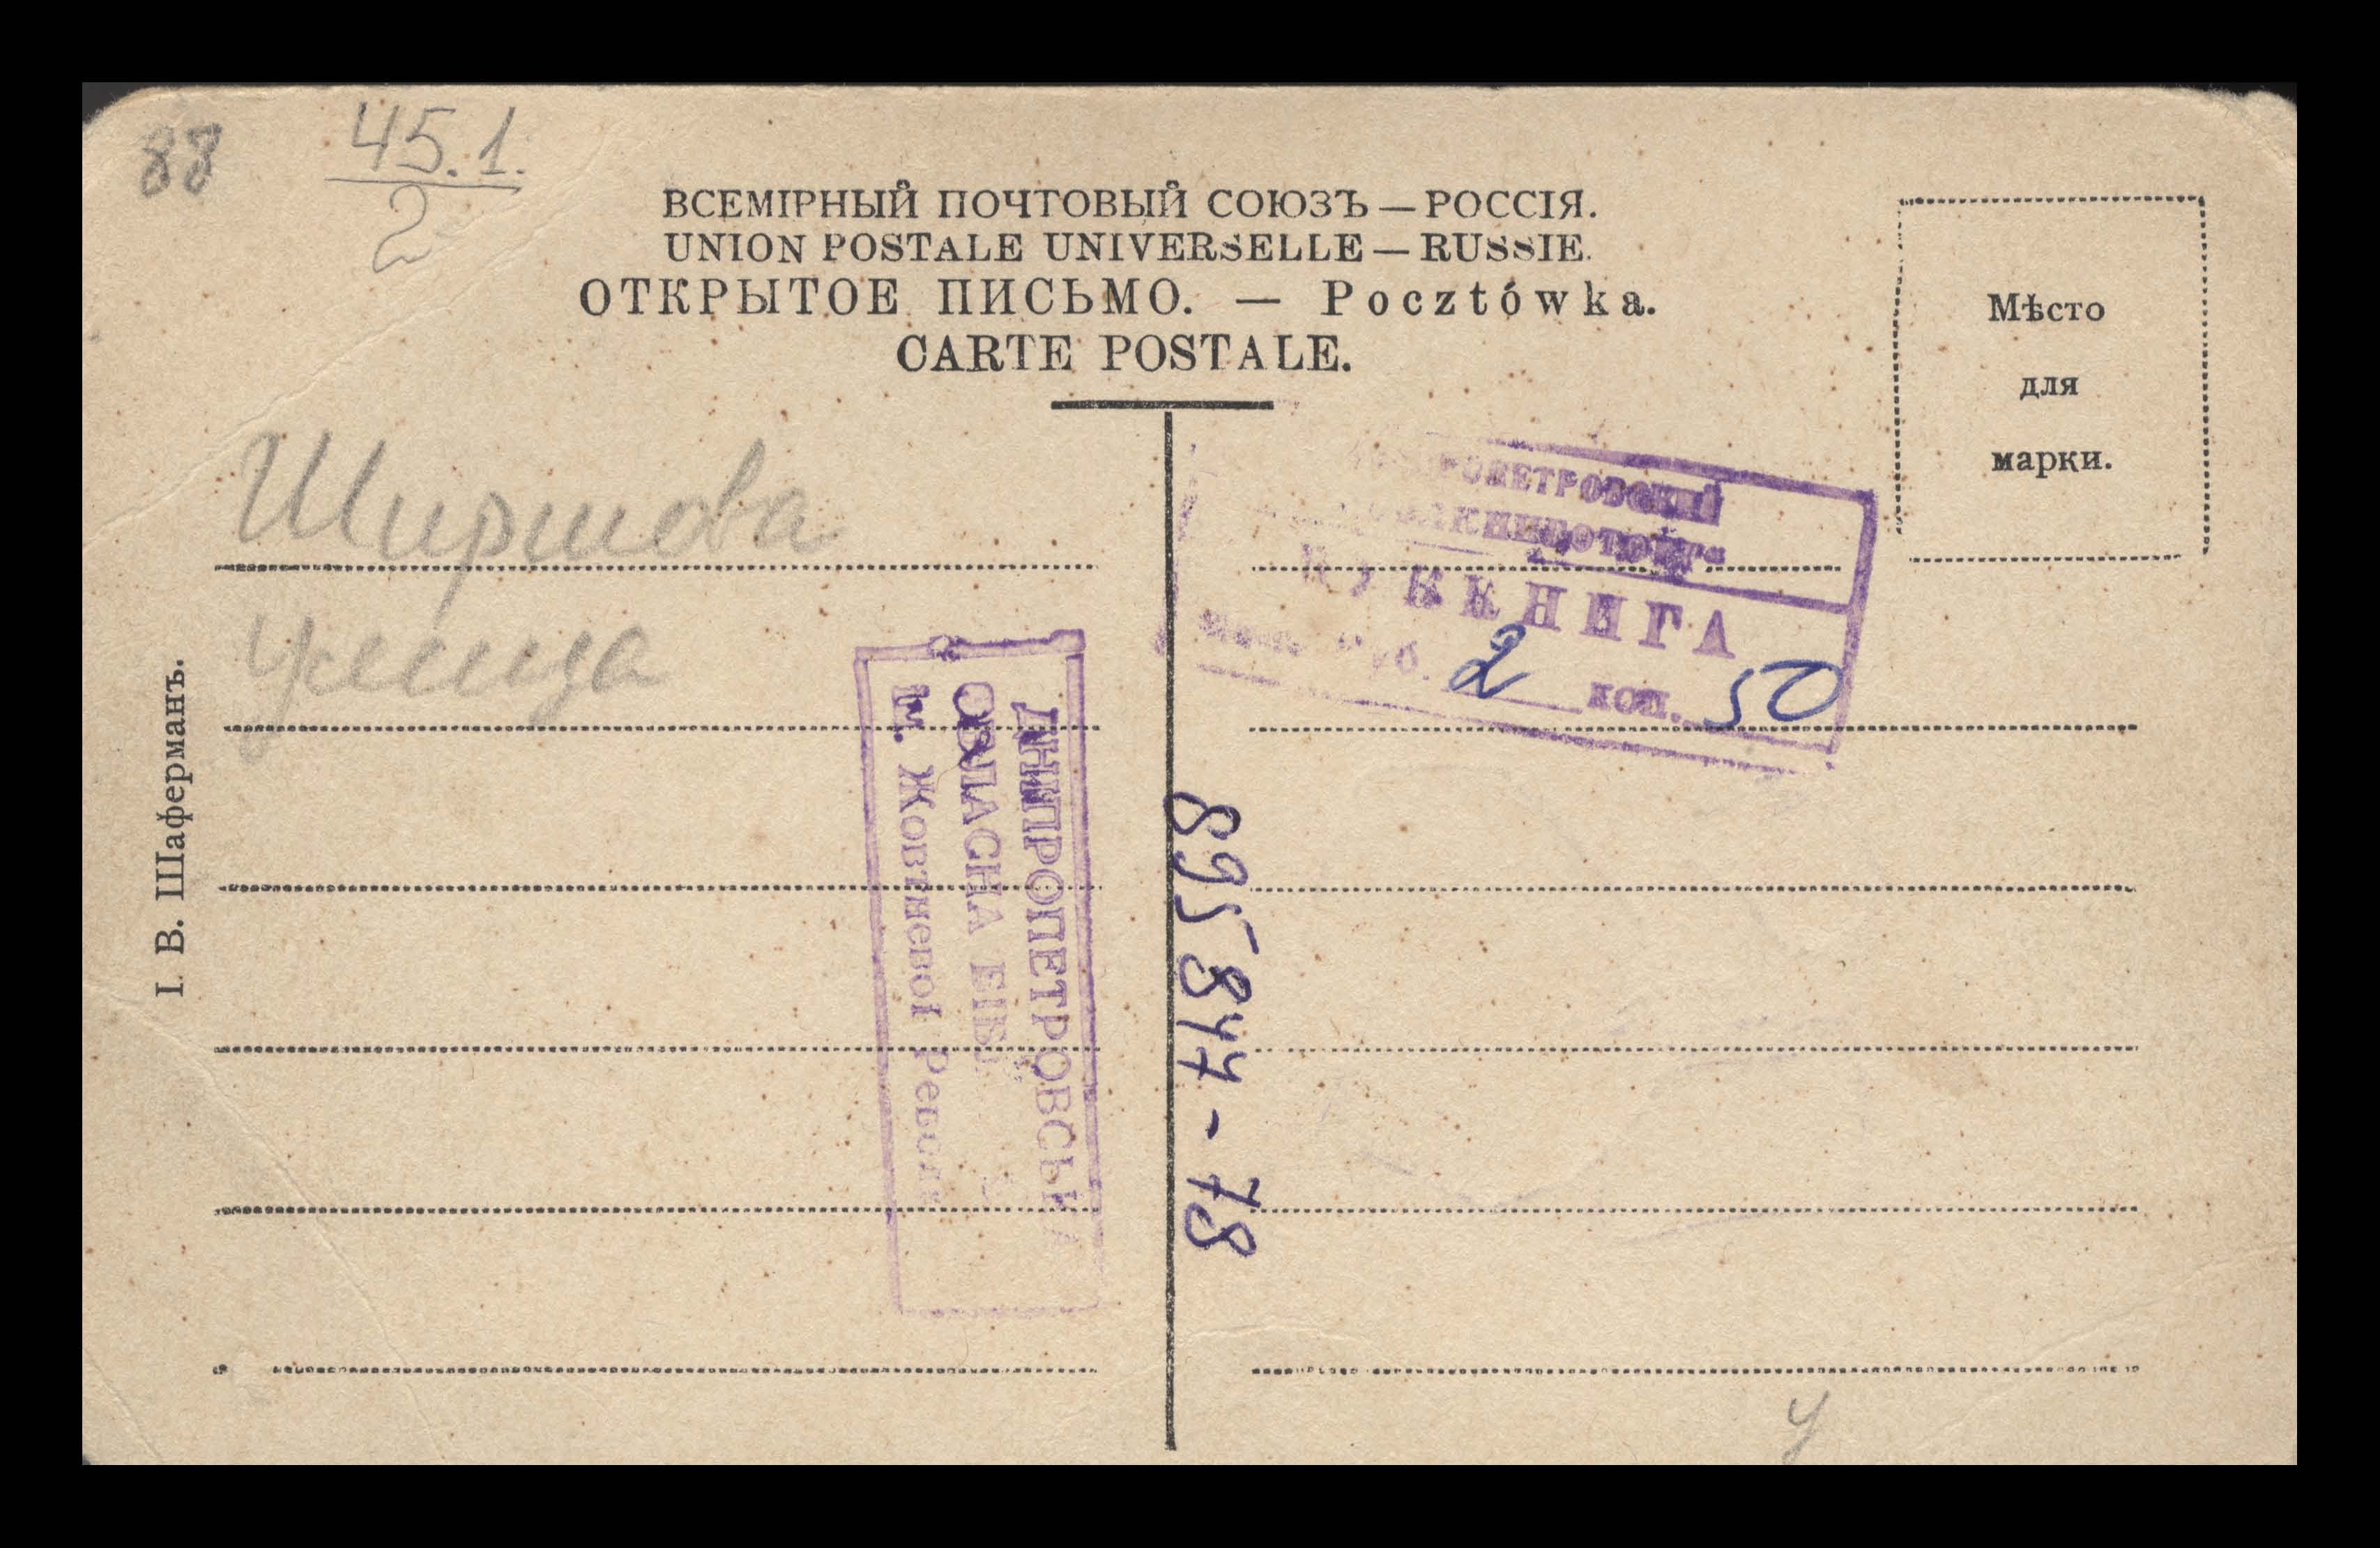 88
45.1.
2
ВСЕМІРНЫЙ ПОЧТОВЫЙ СОЮЗЪ — РОССІЯ.
UNION POSTALE UNIVERSELLE — RUSSIE.
ОТКРЫТОЕ ПИСЬМО. — Pocztówka.
CARTE POSTALE.
Мѣсто
для
марки.
Ширшова
улица
І. В. Шаферманъ.
ДНІПРОПЕТРОВСЬКА
ОБЛАСНА
ім. Жовтневої
КНИГА
руб. 2 коп. 50
895844-78
у